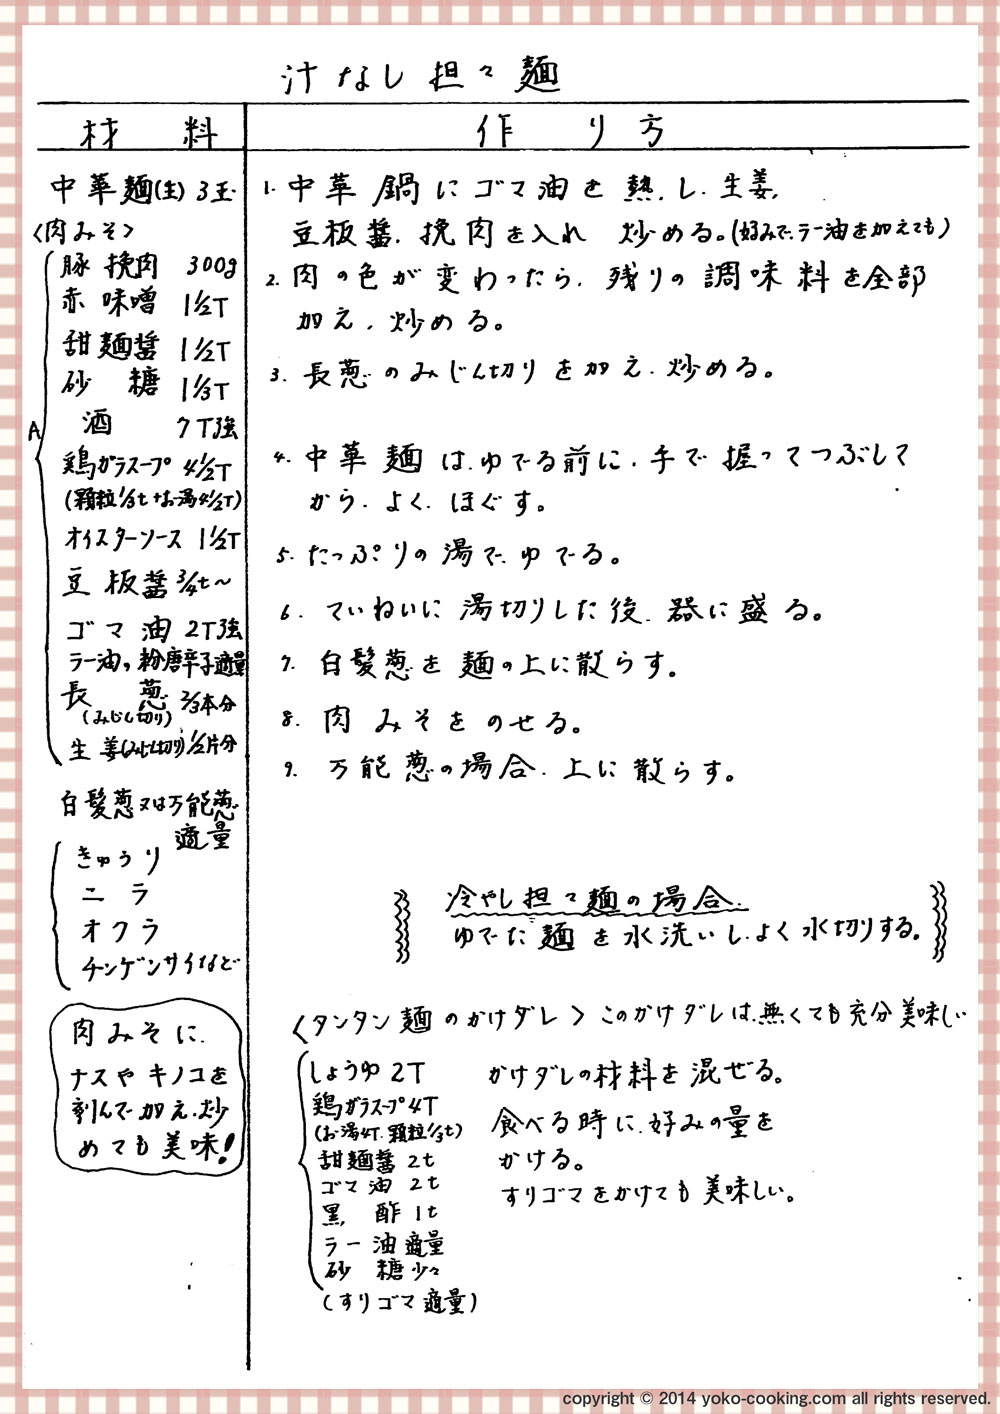 汁なし担々麺
材料
作り方
中華麺(生) 3玉
<肉みそ>
A
豚挽肉 300g
赤味噌 1½T
甜麺醤 1½T
砂糖 1⅓T
酒 7T強
鶏ガラスープ 4½T
(顆粒⅓t+お湯4½T)
オイスターソース 1½T
豆板醤 ¾t〜
ゴマ油 2T強
ラー油、粉唐辛子適量
長葱 ⅔本分
(みじん切り)
生姜(みじん切り) ½片分
白髪葱又は万能葱
適量
きゅうり
ニラ
オクラ
チンゲンサイなど
肉みそに、
ナスやキノコを
刻んで加え、炒
めても美味!
1. 中華鍋にゴマ油を熱し、生姜、
豆板醤、挽肉を入れ 炒める。(好みで、ラー油を加えても)
2. 肉の色が変わったら、残りの調味料を全部
加え、炒める。
3. 長葱のみじん切りを加え、炒める。
4. 中華麺は、ゆでる前に、手で握ってつぶして
から、よく、ほぐす。
5. たっぷりの湯で、ゆでる。
6. ていねいに湯切りした後、器に盛る。
7. 白髪葱を麺の上に散らす。
8. 肉みそをのせる。
9. 万能葱の場合、上に散らす。
冷やし担々麺の場合、
ゆでた麺を水洗いし、よく水切りする。
<タンタン麺のかけダレ> このかけダレは、無くても充分美味しい
しょうゆ 2T
鶏ガラスープ 4T
(お湯4T、顆粒⅓t)
甜麺醤 2t
ゴマ油 2t
黒酢 1t
ラー油 適量
砂糖 少々
(すりゴマ適量)
かけダレの材料を混ぜる。
食べる時に、好みの量を
かける。
すりゴマをかけても美味しい。
copyright © 2014 yoko-cooking.com all rights reserved.